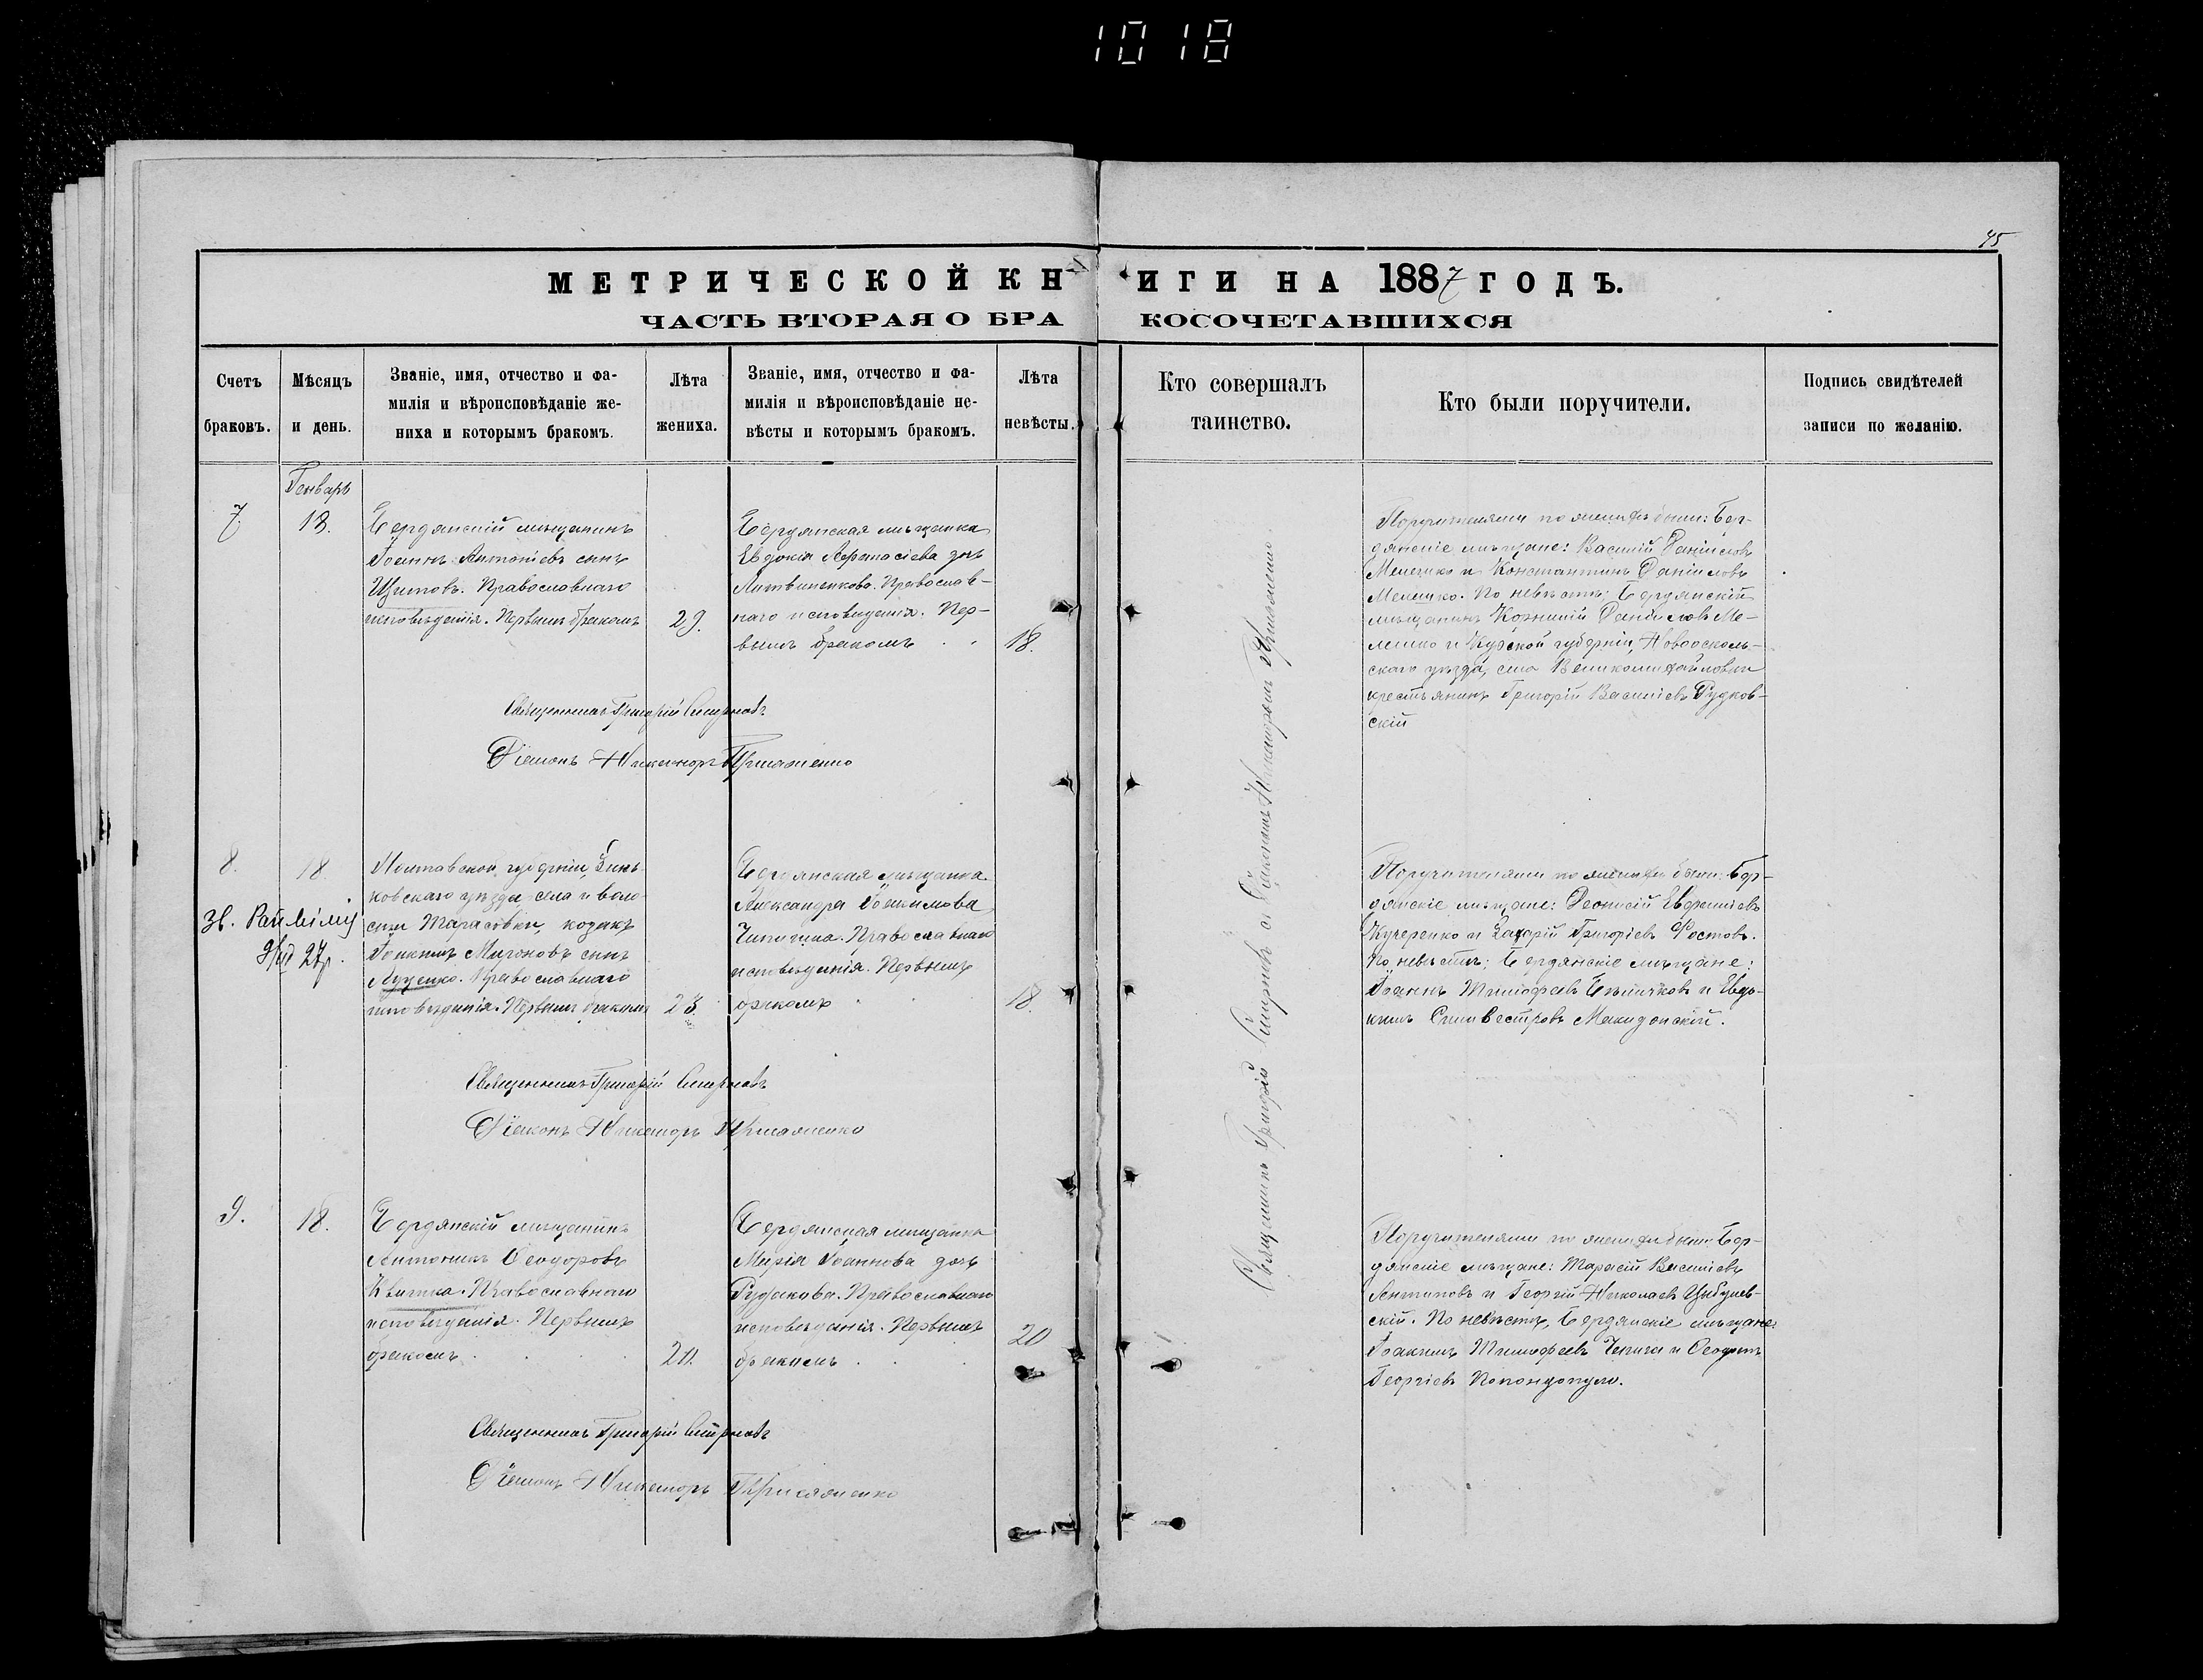 1018
45
МЕТРИЧЕСКОЙ КНИГИ НА 1887 ГОДЪ.
ЧАСТЬ ВТОРАЯ О БРАКОСОЧЕТАВШИХСЯ
Счетъ браковъ.
Мѣсяцъ и день.
Званіе, имя, отчество и фа-
милія и вѣроисповѣданіе же-
ниха и которымъ бракомъ.
Лѣта жениха.
Званіе, имя, отчество и фа-
милія и вѣроисповѣданіе не-
вѣсты и которымъ бракомъ.
Лѣта невѣсты.
Кто совершалъ
таинство.
Кто были поручители.
Подпись свидѣтелей
записи по желанію.
Генварь
7
18.
Бердянскій мѣщанинъ
Іоаннъ Антоніевъ сынъ
Щитовъ. Православнаго
исповѣданія. Первымъ бракомъ
29.
Бердянская мѣщанка
Евдокія Афанасіева дочь
Литвиненкова. Православ-
наго исповѣданія. Пер-
вымъ бракомъ
18.
Поручителями по женихѣ были: Бер-
дянскіе мѣщане: Василій Даніиловъ
Мелешко и Константинъ Даніиловъ
Мелешко. По невѣстѣ: Бердянскій
мѣщанинъ Корнилій Даніиловъ Ме-
лешко и Курской губерніи, Новоосколь-
скаго уѣзда, села Великомихайловки
крестьянинъ Григорій Василіевъ Рудков-
скій
Священникъ Григорій Смирновъ
Діаконъ Никаноръ Прислоненко
Священникъ Григорій Смирновъ съ Діакономъ Никаноромъ
8.
18
Полтавской губерніи, Зинь-
ковскаго уѣзда, села и воло-
сти Тарасовки, козакъ
Іоакимъ Мироновъ сынъ
Луценко. Православнаго
исповѣданія. Первымъ бракомъ
23.
Бердянская мѣщанка
Александра Іоакимова
Православнаго
исповѣданія. Первымъ
бракомъ
18.
Поручителями по женихѣ были: Бер-
дянскіе мѣщане: Леонтій Евфиміевъ
Кучеренко и Захарій Григоріевъ Ростовъ.
По невѣстѣ: Бердянскіе мѣщане:
Іоаннъ Тимофеевъ и Евдо-
кимъ Силивестровъ Македонскій.
Зв.
27р.
Священникъ Григорій Смирновъ
Діаконъ Никаноръ Прислоненко
9.
18.
Бердянскій мѣщанинъ
Антонинъ Ѳеодоровъ
Квитка. Православнаго
исповѣданія. Первымъ
бракомъ
Бердянская мѣщанка
Марія Іоаннова дочь
Рудакова. Православнаго
исповѣданія. Первымъ
бракомъ
20
Поручителями по женихѣ были: Бер-
дянскіе мѣщане: Тарасій Василіевъ
Антиповъ и Георгій Николаевъ Цибулев-
скій. По невѣстѣ, Бердянскіе мѣщане:
Іоакимъ Тимофеевъ Чепига и Ѳеодотъ
Георгіевъ Попондопуло.
Священникъ Григорій Смирновъ
Діаконъ Никаноръ Прислоненко